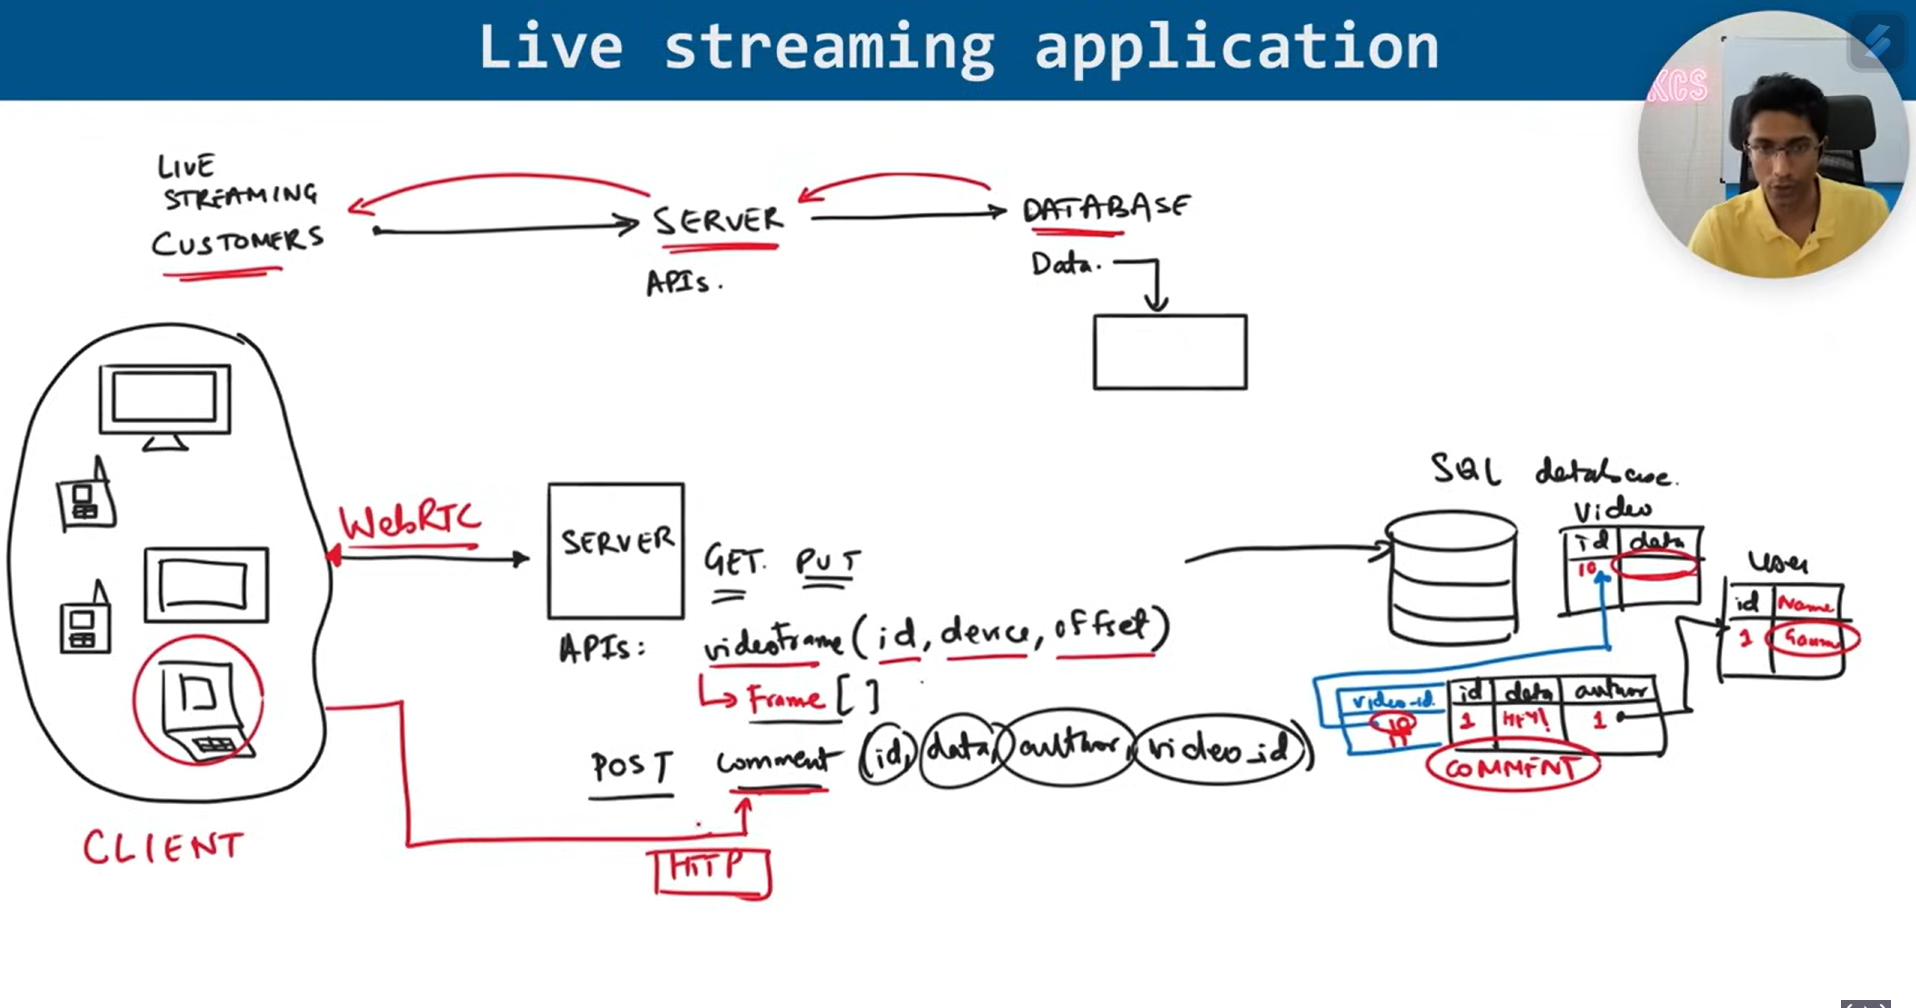 Live streaming application
KCS
LIVE
STREAMING
CUSTOMERS
SERVER
APIs.
DATABASE
Data.
WebRTC
SERVER
GET. PUT
APIs: videoFrame (id, device, offset)
Frame []
POST comment (id, data, author, video_id)
HTTP
CLIENT
SQL database.
Video
id data
10
User
id Name
1
video-id. id data author
10 1 HEY! 1
11
COMMENT